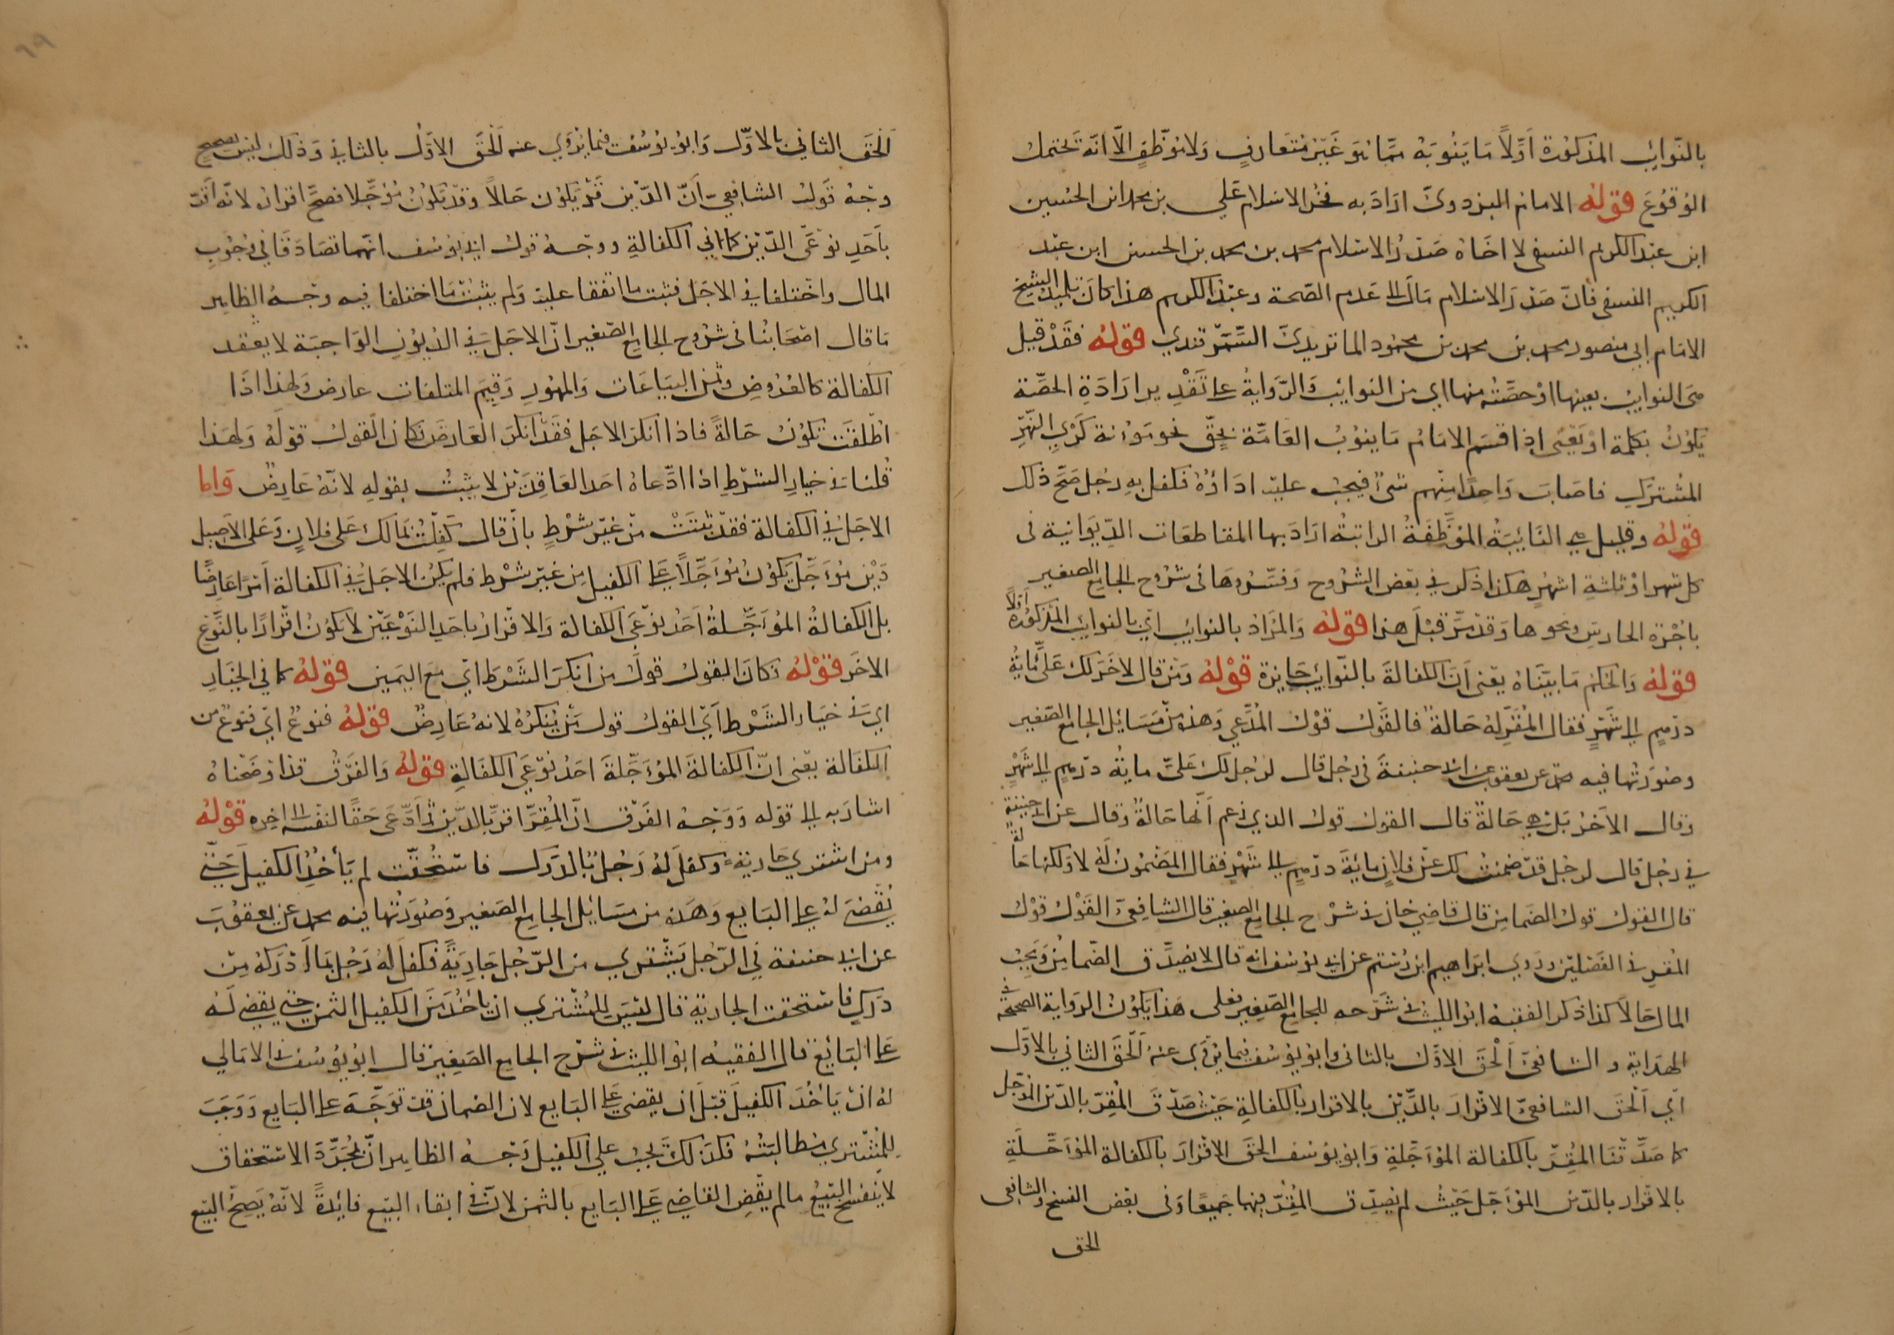 بالنوايب المذكورة اولا ما ينوبه مما هو غير متعارف ولا موظف الا انه تحتمل
الوقوع قوله الامام البزدوي اراد به فخر الاسلام علي بن محمد ابن الحسين
ابن عبد الكريم النسفي لا اخاه صدر الاسلام محمد بن محمد بن الحسين ابن عبد
الكريم النسفي فان صدر الاسلام مال الى عدم الصحة وعبد الكريم هذا كان تلميذ الشيخ
الامام ابي منصور محمد بن محمد بن محمود الماتريدي السمرقندي قوله فقد قيل
هي النوايب بعينها او حصته منها اي من النوايب والرواية على تقدير ارادة الحصة
يكون بكلمة او يعني اذا قسم الامام ما ينوب العامة بحق نحو مؤنة كري النهر
المشترك فاصاب واحدا منهم شئ فيجب عليه اداؤه فكفل به رجل صح ذلك
قوله وقيل هي النايبة الموظفة الراتبة اراد بها المقاطعات الديوانية في
كل شهر او ثلثة اشهر هكذا ذكر في بعض الشروح وفسروها في شروح الجامع الصغير
باجرة الحارس ونحوها وقد مر قبل هذا قوله والمراد بالنوايب اي بالنوايب المذكورة اولا
قوله والحكم ما بيناه يعني ان الكفالة بالنوايب جايزة قوله ومن قال لاخر لك علي ماية
درهم الى شهر فقال المقر له حالة فالقول قول المدعي وهذه من مسائل الجامع الصغير
وصورتها فيه محمد عن يعقوب عن ابي حنيفة في رجل قال لرجل لك علي ماية درهم الى شهر
وقال الاخر بل هي حالة قال القول قول الذي زعم انها حالة وقال عن ابي حنيفة
في رجل قال لرجل قد ضمنت لك عن فلان ماية درهم الى شهر فقال المضمون له لا ولكنها حالة
قال القول قول الضامن قال قاضي خان في شرح الجامع الصغير قال الشافعي القول قول
المقر في الفصلين وروي ابراهيم ابن رستم عن ابي يوسف انه قال لا يصدق الضامن ويجب
المال حالا كذا ذكر الفقيه ابو الليث في شرحه للجامع الصغير فعلى هذا يكون الرواية الصحيحة في
الهداية والشافعي الحق الاول بالثاني وابو يوسف فيما يروي عنه الحق الثاني بالاول
اي الحق الشافعي الاقرار بالدين بالاقرار بالكفالة حيث صدق المقر بالدين المؤجل
كما صدقنا المقر بالكفالة المؤجلة وابو يوسف الحق الاقرار بالكفالة المؤجلة
بالاقرار بالدين المؤجل حيث لم يصدق المقر فيها جميعا وفي بعض النسخ والشافعي
الحق
الحق الثاني بالاول وابو يوسف فيما يروي عنه الحق الاول بالثاني وذلك ليس بصحيح
وجه قول الشافعي ان الدين قد يكون حالا وقد يكون مؤجلا فصح اقراره لانه اقر
باحد نوعي الدين كما في الكفالة ووجه قول ابي يوسف انهما تصادقا في وجوب
المال واختلفا في الاجل فثبت ما اتفقا عليه ولم يثبت ما اختلفا فيه وجه الظاهر
ما قال اصحابنا في شروح الجامع الصغير ان الاجل في الديون الواجبة لا بعقد
الكفالة كالقروض وثمن البياعات والمهور وقيم المتلفات عارض ولهذا اذا
اطلقت تكون حالة فاذا انكر الاجل فقد انكر العارض فكان القول قوله ولهذا
قلنا في خيار الشرط اذا ادعاه احد العاقدين لا يثبت بقوله لانه عارض واما
الاجل في الكفالة فقد تثبت من غير شرط بان قال كفلت بما لك على فلان وعلى الاصيل
دين مؤجل يكون مؤجلا على الكفيل من غير شرط فلم يكن الاجل في الكفالة امرا عارضا
بل الكفالة المؤجلة احد نوعي الكفالة والاقرار باحد النوعين لا يكون اقرارا بالنوع
الاخر قوله فكان القول قول من انكر الشرط اي مع اليمين قوله كما في الخيار
اي في خيار الشرط اي القول قول من ينكره لانه عارض قوله فنوع اي فنوع من
الكفالة يعني ان الكفالة المؤجلة احد نوعي الكفالة قوله والفرق قد اوضحناه
اشار به الى قوله ووجه الفرق ان المقر اقر بالدين ثم ادعى حقا لنفسه الى اخره قوله
ومن اشترى جارية وكفل له رجل بالدرك فاستحقت لم يأخذ الكفيل حتى
يقضى له على البايع وهذه من مسايل الجامع الصغير وصورتها فيه محمد عن يعقوب
عن ابي حنيفة في الرجل يشتري من الرجل جارية فكفل له رجل بما ادركه من
درك فاستحقت الجارية قال ليس للمشتري ان ياخذ من الكفيل الثمن حتى يقضى له
على البائع قال الفقيه ابو الليث في شرح الجامع الصغير قال ابو يوسف في الامالي
له ان يأخذ الكفيل قبل ان يقضى على البايع لان الضمان قد توجه على البايع ووجب
للمشتري مطالبته فكذلك يجب على الكفيل وجه الظاهر ان بمجرد الاستحقاق
لا ينفسخ البيع ما لم يقض القاضي على البايع بالثمن لان في ابقاء البيع فائدة لانه يصح البيع